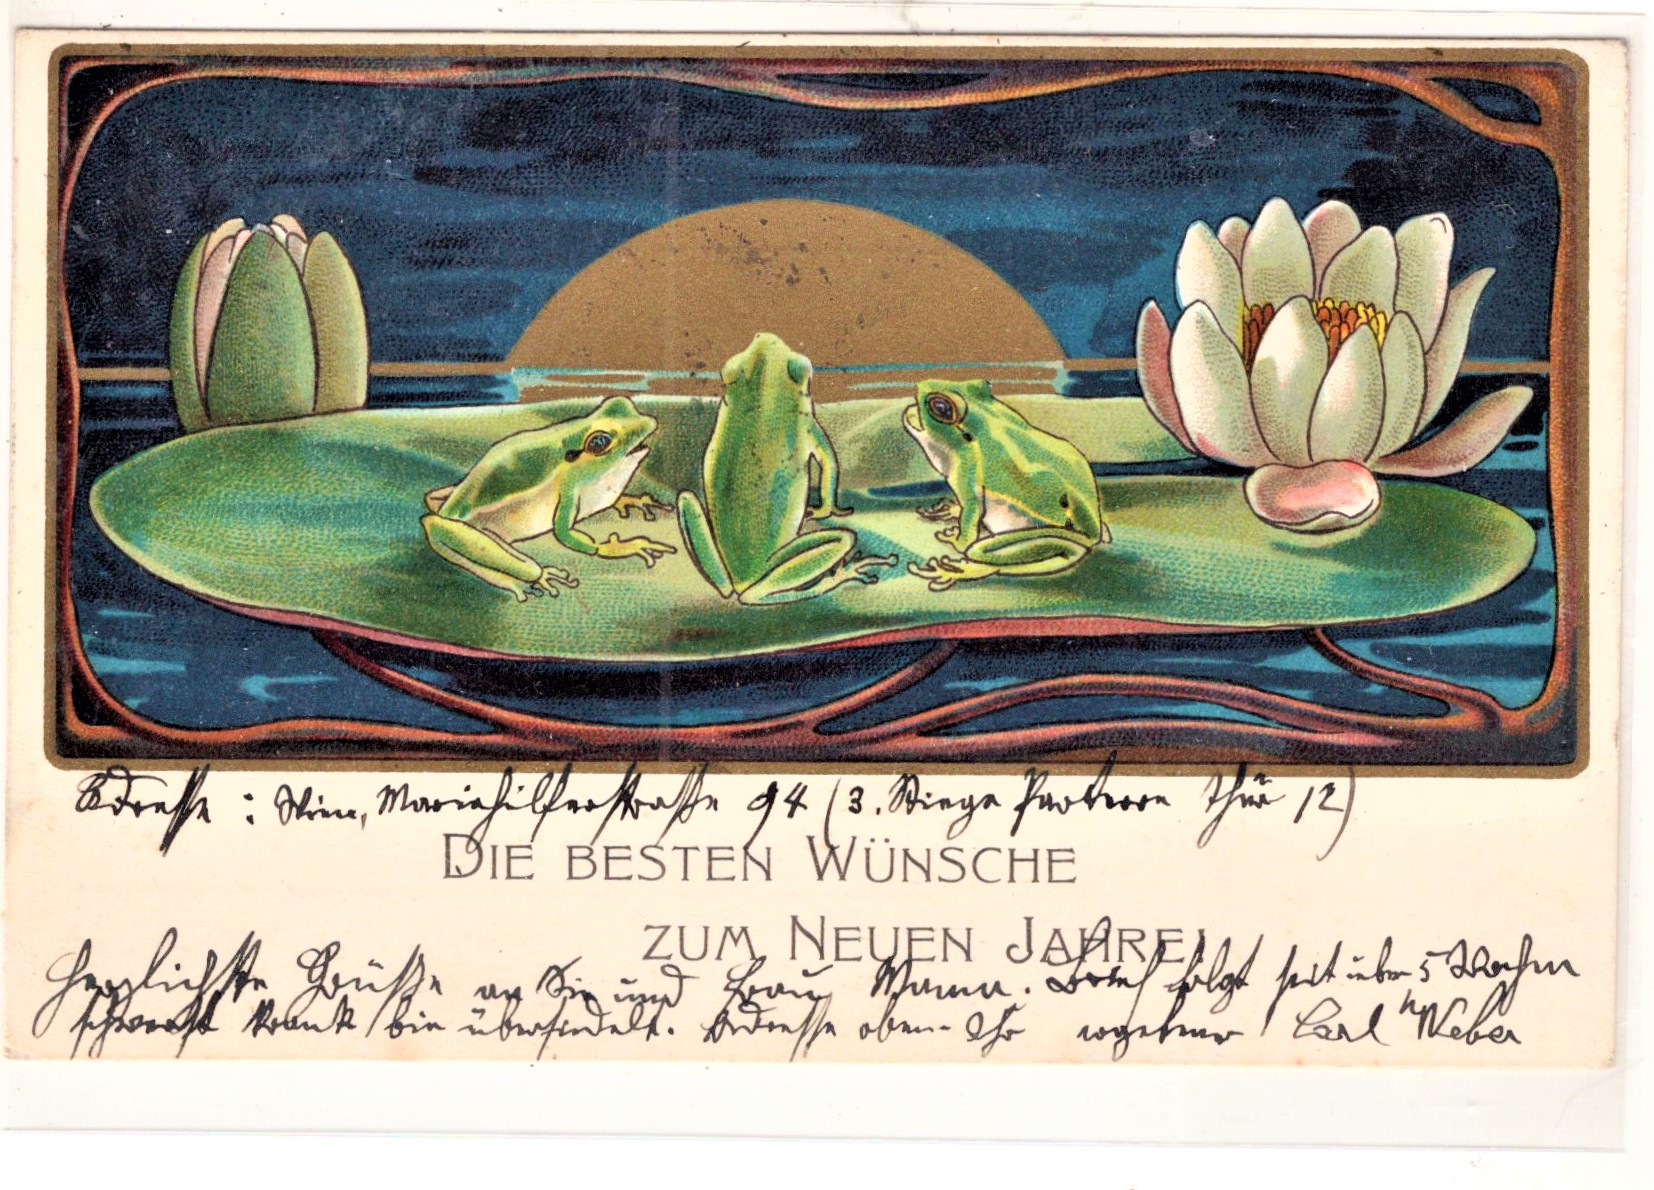 Adresse : Wien, Mariahilferstraße 94 (3. Stiege Parterre Thür 12)
DIE BESTEN WÜNSCHE
ZUM NEUEN JAHRE!
Herzlichste Grüße an Sie und Frau Mama. Brief folgt seit über 5 Wochen
schwerst krank bin übersiedelt. Adresse oben. Ihr ergebener Carl Weber